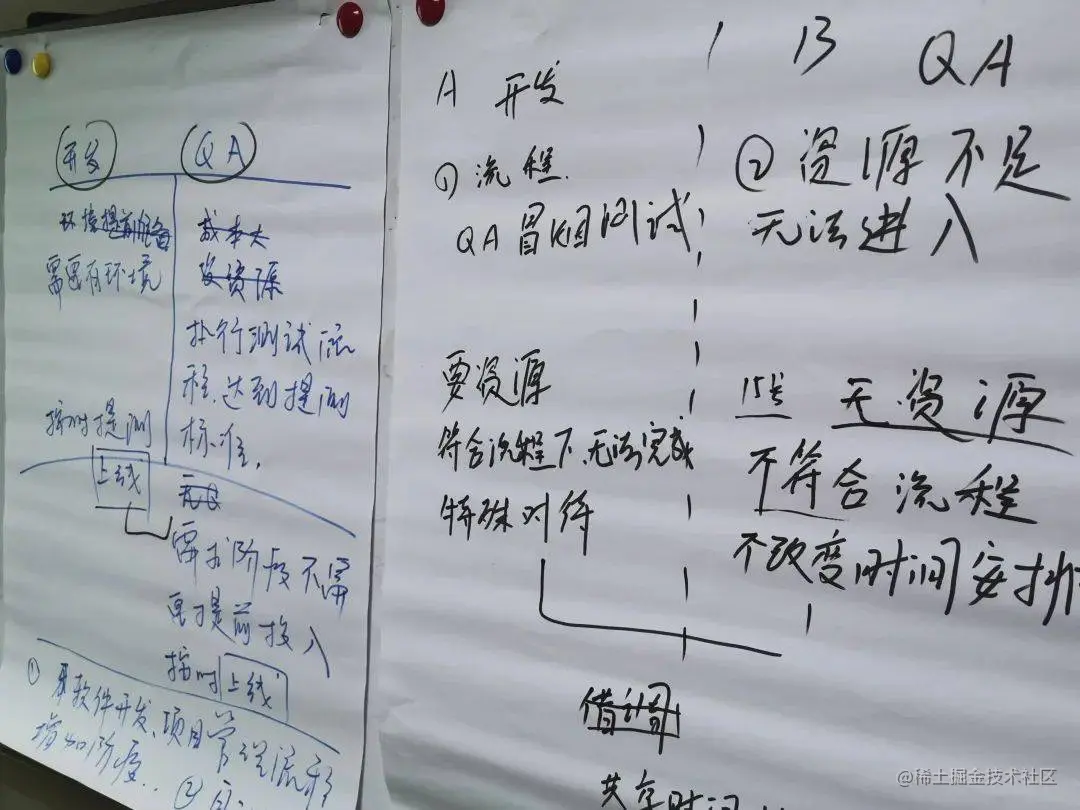 开发
QA
环境提前准备
需要有环境
按时提测
上线
成本大
没资源
执行测试流
程,达到提测
标准,
无Q
需求阶段不需
要提前投入
按时上线
① 软件开发、项目管理流程
增加阶段..
②
A 开发
① 流程.
QA冒烟测试
要资源
符合流程下,无法完成
特殊对待
B QA
② 资源不足
无法进入
15号 无资源
不符合流程
不改变时间安排
借调
共享时间
@稀土掘金技术社区